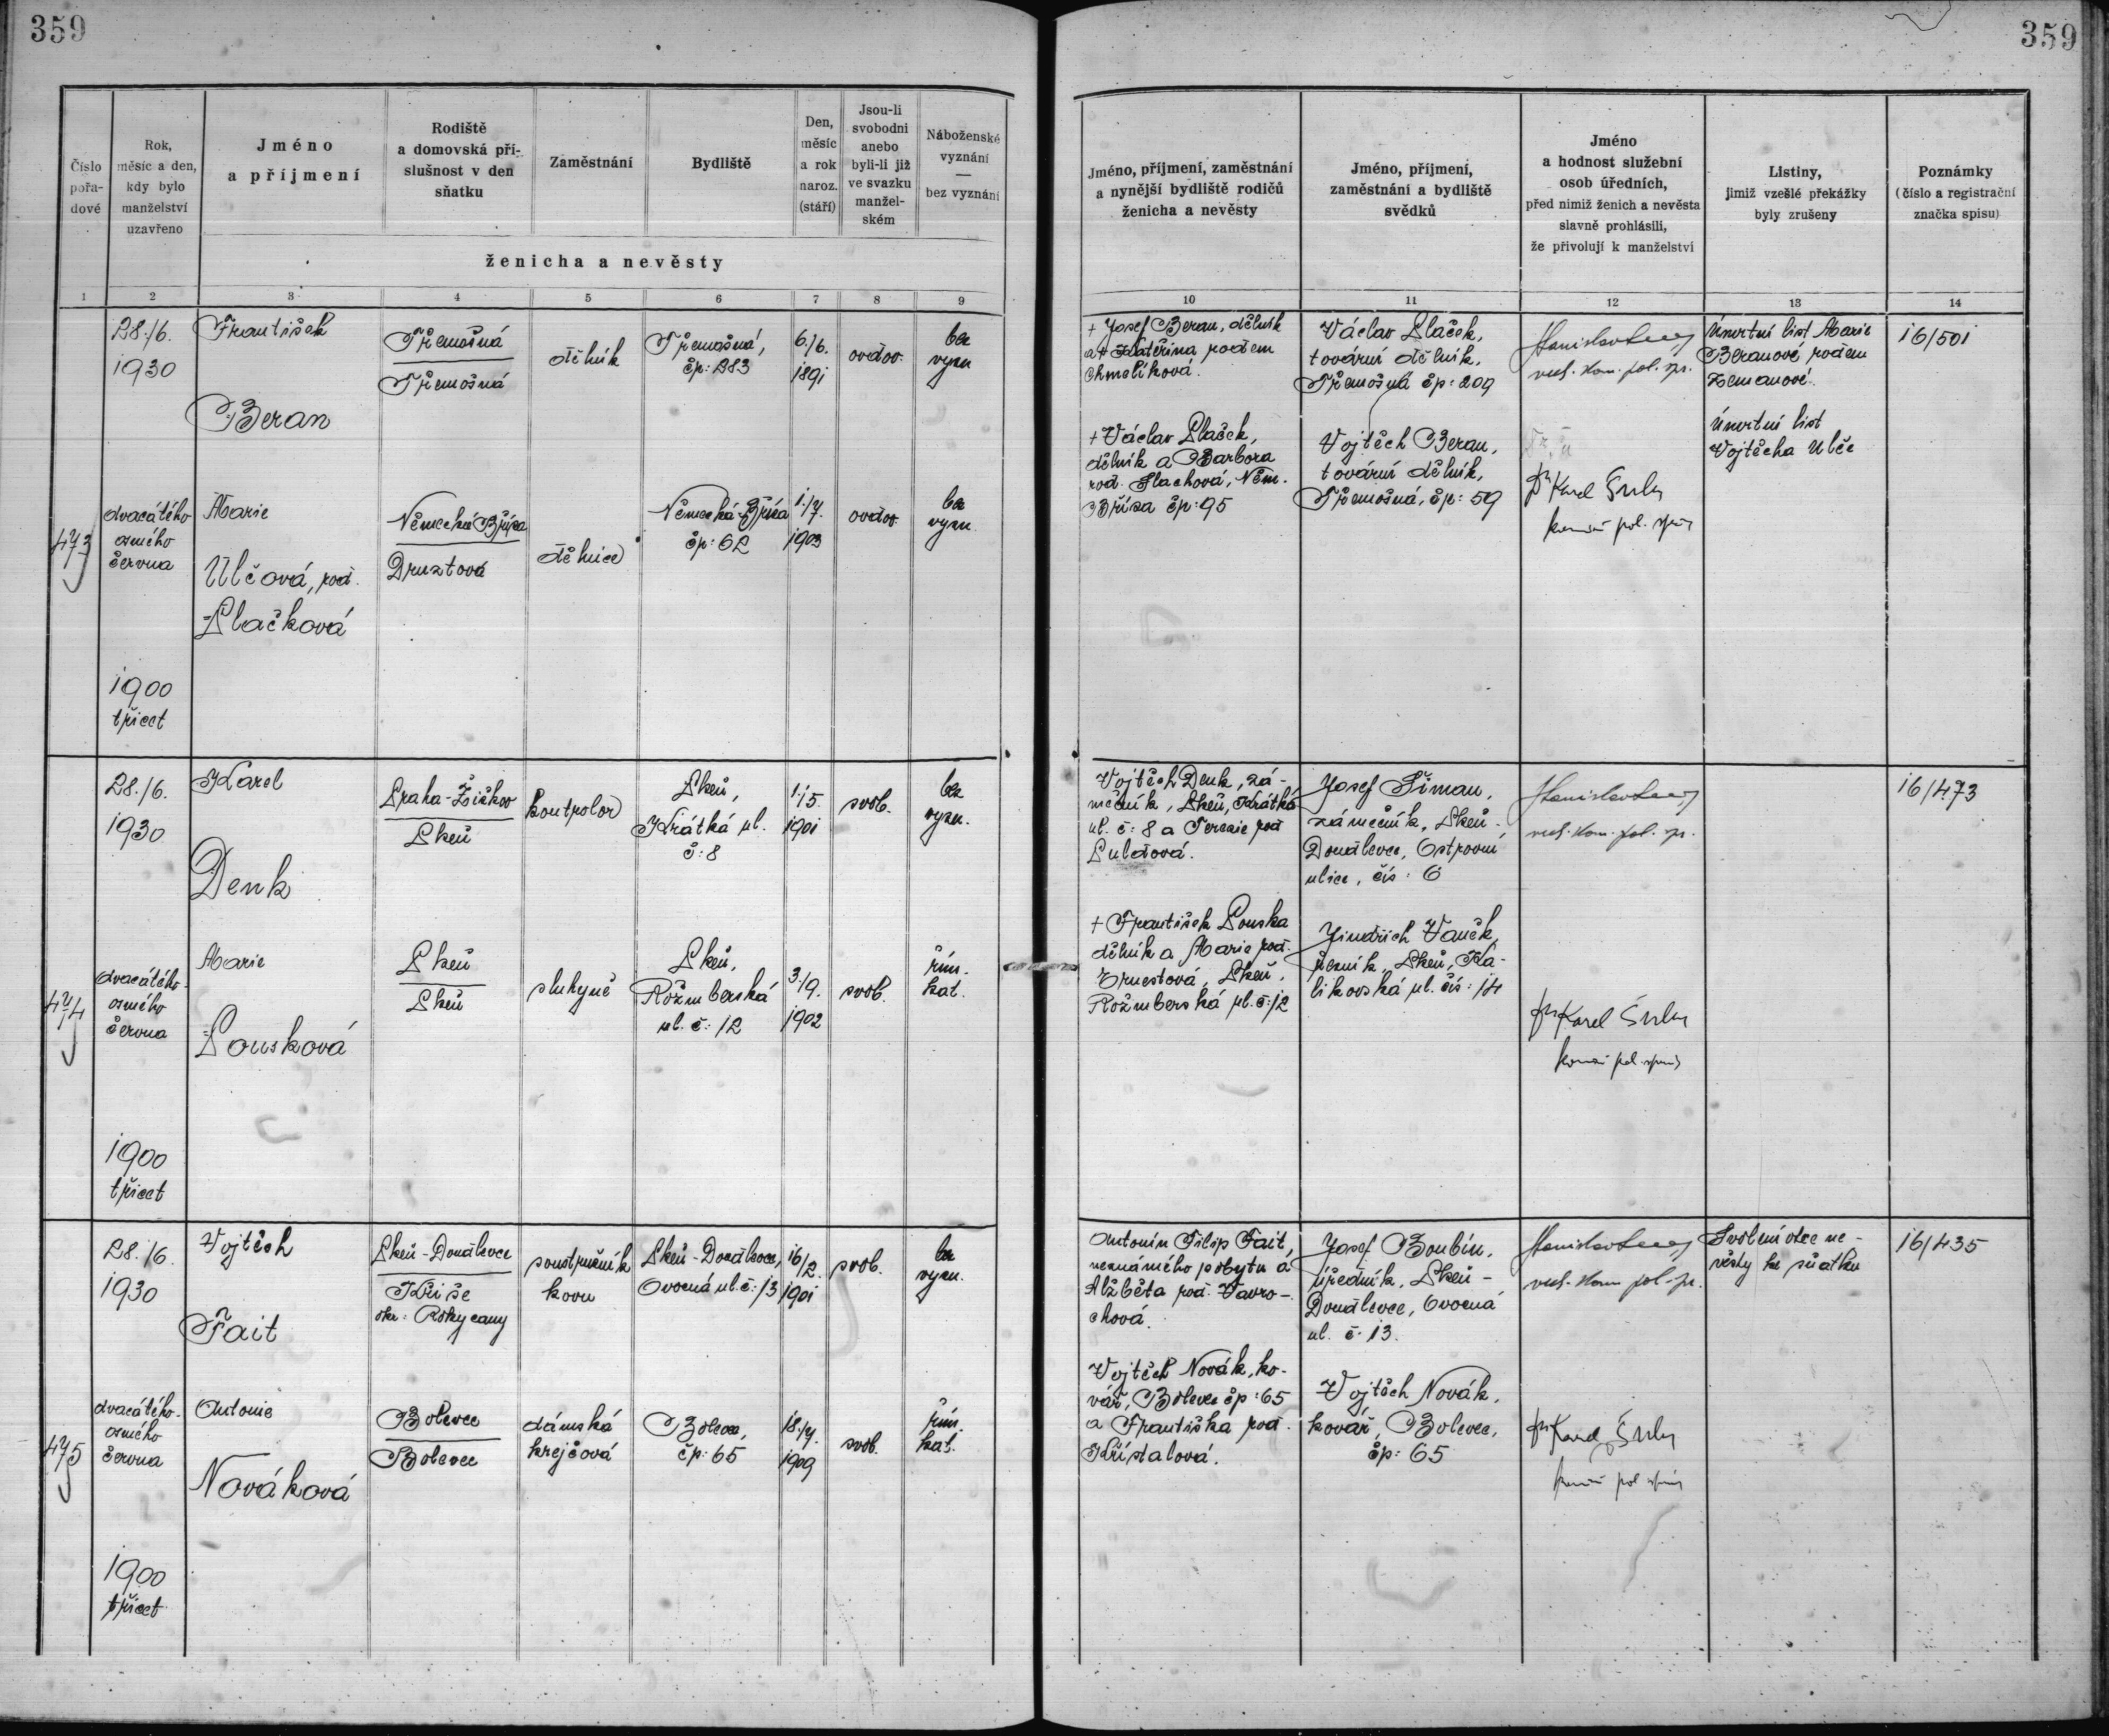 359
359
Číslo
pořa-
dové
Rok,
měsíc a den,
kdy bylo
manželství
uzavřeno
Jméno
a příjmení
Rodiště
a domovská pří-
slušnost v den
sňatku
Zaměstnání
Bydliště
Den,
měsíc
a rok
naroz.
(stáří)
Jsou-li
svobodni
anebo
byli-li již
ve svazku
manžel-
ském
Náboženské
vyznání
—
bez vyznání
ženicha a nevěsty
Jméno, příjmení, zaměstnání
a nynější bydliště rodičů
ženicha a nevěsty
Jméno, příjmení,
zaměstnání a bydliště
svědků
Jméno
a hodnost služební
osob úředních,
před nimiž ženich a nevěsta
slavně prohlásili,
že přivolují k manželství
Listiny,
jimiž vzešlé překážky
byly zrušeny
Poznámky
(číslo a registrační
značka spisu)
1 2 3 4 5 6 7 8 9
10 11 12 13 14
473
28./6.
1930
dvacátého
osmého
června
1900
třicet
František
Beran
Třemošná
Třemošná
dělník
Třemošná,
čp: 283
6./6.
1891
ovdov.
bez
vyzn
Marie
Ulčová, roz.
Plačková
Německá Bříza
Druztová
dělnice
Německá Bříza
čp: 62
1./7.
1903
ovdov.
bez
vyzn.
+ Josef Beran, dělník
a + Kateřina rozem
Chmelíková.
+ Václav Plaček,
dělník a Barbora
roz. Flachová, Něm.
Bříza čp: 95
Václav Plaček,
tovární dělník,
Třemošná čp: 209
Vojtěch Beran,
tovární dělník,
Třemošná, čp: 59
vrch. kom. pol. spr.
Karel
pol. spr.
Úmrtní list Marie
Beranové rozem
Zemanové.
Úmrtní list
Vojtěcha Ulče
16/501
474
28./6.
1930
dvacátého
osmého
června
1900
třicet
Karel
Denk
Praha-Žižkov
Plzeň
kontrolor
Plzeň,
Krátká ul.
č: 8
1./5.
1901
svob.
bez
vyzn.
Marie
Pousková
Plzeň
Plzeň
služyně
Plzeň,
Rožmberská
ul. č: 12
3./9.
1902
svob.
řím.
kat.
Vojtěch Denk, zá-
mečník, Plzeň, Krátká
ul. č: 8 a Terezie roz
Puldová.
+ František Pouska
dělník a Marie roz.
Ernestová, Plzeň,
Rožmberská ul. č: 12
Josef Šiman,
zámečník, Plzeň-
Doudlevce, Ostrovní
ulice, čís: 6
Jindřich Vaněk,
řezník, Plzeň, Ha-
likovská ul. čís: 14
vrch. kom. pol. spr.
Karel
pol. spr.
16/473
475
28./6.
1930
dvacátého
osmého
června
1900
třicet
Vojtěch
Fait
Plzeň-Doudlevce
Kříše
okr: Rokycany
soustružník
kovu
Plzeň-Doudlevce,
Ovocná ul. č: 13
16/2.
1901
svob.
bez
vyzn.
Antonie
Nováková
Bolevec
Bolevec
dámská
krejčová
Bolevec,
čp: 65
18./4.
1909
svob.
řím.
kat.
Antonín Filip Fait,
neznámého pobytu a
Alžběta roz. Vavro-
chová.
Vojtěch Novák, ko-
vář, Bolevec čp: 65
a Františka roz.
Křístalová.
Josef Boubín,
úředník, Plzeň-
Doudlevce, Ovocná
ul. č. 13.
Vojtěch Novák,
kovář, Bolevec,
čp: 65
vrch. kom. pol. spr.
Karel
pol. spr.
Svolení otce ne-
věsty ke sňatku
16/435